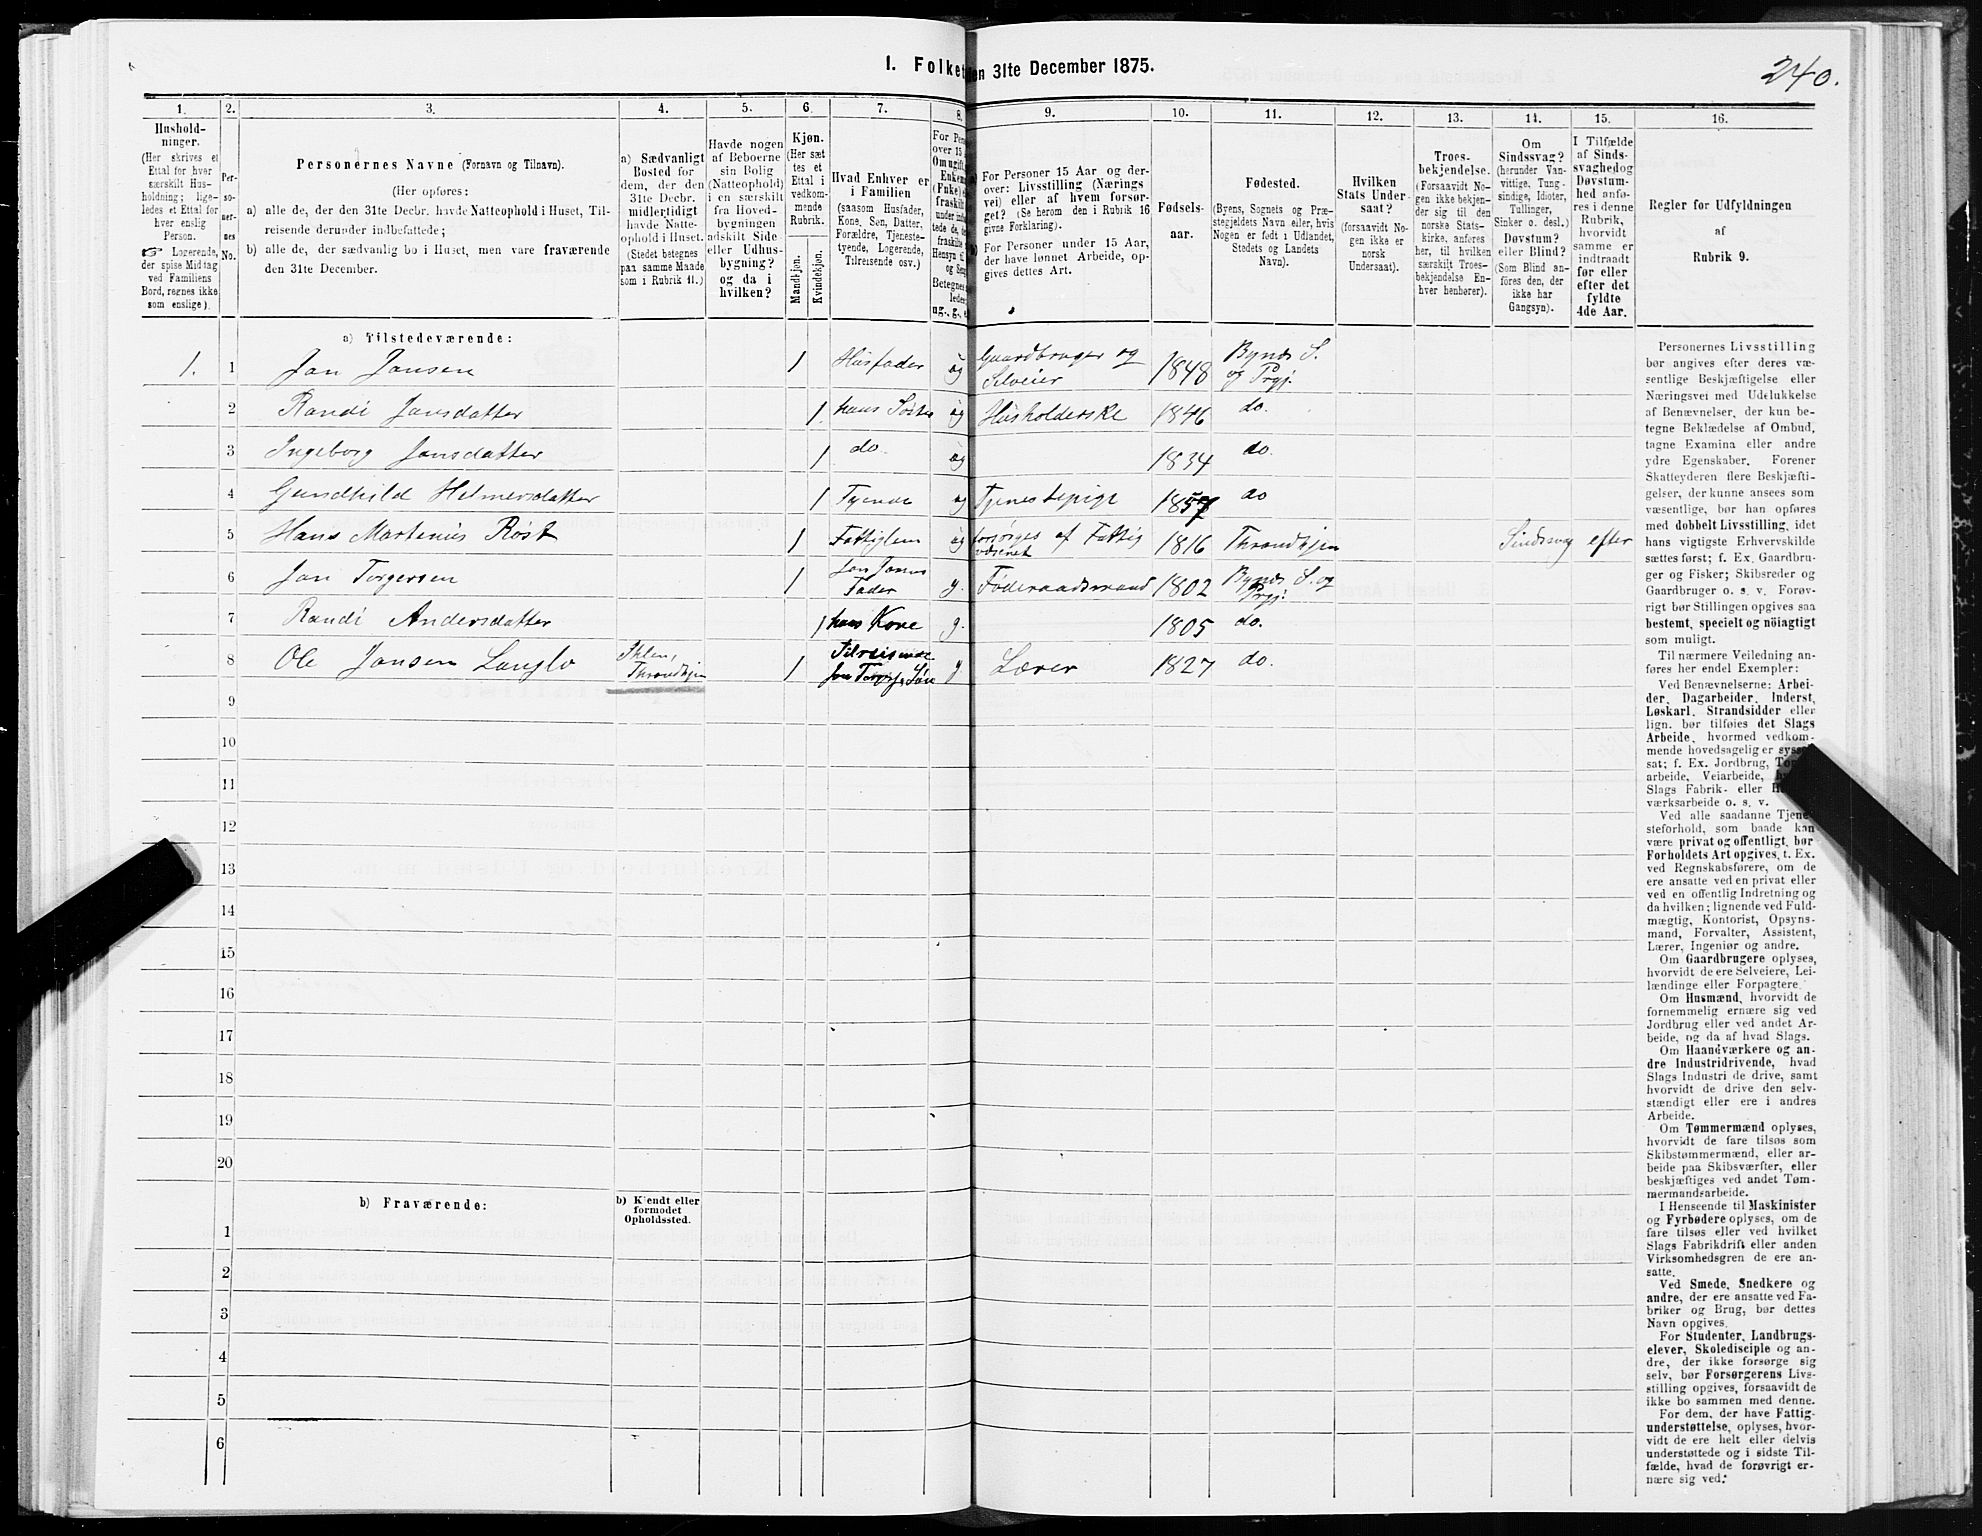 I. Folket
en 31te December 1875.
240.
1.
2.
3.
4.
5.
6.
7.
8.
9.
10.
11.
12.
13.
14.
15.
16.
Hushold-
ninger.
(Her skrives et
Ettal for hver
særskilt Hus-
holdning; lige-
ledes et Ettal for
hver enslig
Person.
☞ Logerende,
der spise Middag
ved Familiens
Bord, regnes ikke
som enslige).
Per-
so-
ner-
nes
No.
Personernes Navne (Fornavn og Tilnavn).
(Her opføres:
a) alle de, der den 31te Decbr. havde Natteophold i Huset, Til-
reisende derunder indbefattede;
b) alle de, der sædvanlig bo i Huset, men vare fraværende
den 31te December.
a) Sædvanligt
Bosted for
dem, der den
31te Decbr.
midlertidigt
havde Natte-
ophold i Huset.
(Stedet betegnes
paa samme Maade
som i Rubrik 11.)
Havde nogen
af Beboerne
sin Bolig
(Natteophold)
i en særskilt
fra Hoved-
bygningen
adskilt Side-
eller Udhus-
bygning?
og da i
hvilken?
Kjøn.
(Her sæt
tes et
Ettal i
vedkom-
mende
Rubrik.
Mandkjøn.
Kvindekjøn.
Hvad Enhver er
i Familien
(saasom Husfader,
Kone, Søn, Datter,
Forældre, Tjeneste-
tyende, Logerende,
Tilreisende osv.)
For Pers
over 15
Om ugift,
Enkem
(Fnke)
fraskilt
under indbe
tede de,
fraskilte
Hensyn ti
og Seng
Betegnes
ledes
ug., g., e
a) For Personer 15 Aar og der-
over: Livsstilling (Nærings
vei) eller af hvem forsør-
get? (Se herom den i Rubrik 16
givne Forklaring).
b) For Personer under 15 Aar,
der have lønnet Arbeide, op-
gives dettes Art.
Fødsels-
aar.
Fødested.
(Byens, Sognets og Præ-
stegjeldets Navn eller, hvis
Nogen er født i Udlandet,
Stedets og Landets
Navn).
Hvilken
Stats Under-
saat?
(forsaavidt No-
gen ikke er
norsk
Undersaat).
Troes-
bekjendelse.
(Forsaavidt No-
gen ikke bekjen-
der sig til den
norske Stats-
kirke, anføres
her, til hvilken
særskilt Troes-
bekjendelse En-
hver henhører).
Om
Sindssvag?
(herunder Van-
vittige, Tung-
sindige, Idioter,
Tullinger,
Sinker o. desl.)
Døvstum?
eller Blind?
(Som Blind an-
føres den, der
ikke har
Gangsyn).
I Tilfælde
af Sinds-
svaghed og
Døvstum-
hed anfø-
res i denne
Rubrik,
hvorvidt
samme er
indtraadt
før eller
efter det
fyldte
4de Aar.
Regler for Udfyldningen
af
Rubrik 9.
a) Tilstedeværende:
1. 1 Jon Jonsen 1 Husfader ug Gaardbruger og Selveier 1848 Bynes S. og Prgj.
2 Randi Jonsdatter 1. hans Søster ug Husholderske 1846 do.
3 Ingeborg Jonsdatter 1 do. ug 1834 do.
4 Gundhild Helmersdatter 1 Tyende ug Tjenestepige 1857 do
5 Hans Martenius Røst 1 Fattiglem ug forsørges af Fattigvæsenet 1816 Throndhjem Sindssvag efter
6 Jon Torgersen 1 Jon Jonsens Fader g. Føderaadsmand 1802 Bynes S. og Prgj.
7 Randi Andersdatter 1 hans Kone g. 1805 do.
8 Ole Jonsen Langlo Ihlen, Throndhjem 1 Tilreisende Jon Torgers Søn g Lærer 1827 do.
9
10
11
12
13
14
15
16
17
18
19
20
b) Fraværende:
b) Kjendt eller
formodet
Opholdssted.
1
2
3
4
5
6
Personernes Livsstilling
bør angives efter deres væ-
sentlige Beskjæftigelse eller
Næringsvei med Udelukkelse
af Benævnelser, der kun be-
tegne Beklædelse af Ombud,
tagne Examina eller andre
ydre Egenskaber. Forener
Skatteyderen flere Beskjæfti-
gelser, der kunne ansees som
væsentlige, bør han opføres
med dobbelt Livsstilling, idet
hans vigtigste Erhvervskilde
sættes først; f. Ex. Gaardbru-
ger og Fisker; Skibsreder og
Gaardbruger o. s. v. Forøv-
rigt bør Stillingen opgives saa
bestemt, specielt og nöiagtigt
som muligt.
Til nærmere Veiledning an-
føres her endel Exempler:
Ved Benævnelserne: Arbei-
der, Dagarbeider, Inderst,
Løskarl, Strandsidder eller
lign. bør tilføies det Slags
Arbeide, hvormed vedkom-
mende hovedsagelig er syssel-
sat; f. Ex. Jordbrug,
arbeide, Veiarbeide,
Slags Fabrik- eller
værksarbeide o. s. v.
Ved alle saadanne Tjene-
steforhold, som baade kan
være privat og offentligt, bør
Forholdets Art opgives, t. Ex.
ved Regnskabsførere, om de
ere ansatte ved en privat eller
ved en offentlig Indretning og
da hvilken; lignende ved Fuld-
mægtig, Kontorist, Opsyns-
mand, Forvalter, Assistent,
Lærer, Ingeniør og andre.
Om Gaardbrugere oplyses,
hvorvidt de ere Selveiere, Lei-
lændinge eller Forpagtere.
Om Husmænd, hvorvidt de
fornemmelig ernære sig ved
Jordbrug eller ved andet Ar-
beide, og da af hvad Slags.
Om Haandværkere og an-
dre Industridrivende, hvad
Slags Industri de drive, samt
hvorvidt de drive den selv-
stændigt eller ere i andres
Arbeide.
Om Tømmermænd oplyses,
hvorvidt de fare tilsøs som
Skibstømmermænd, eller ar-
beide paa Skibsværfter, eller
beskjæftiges ved andet Tøm-
mermandsarbeide.
I Henseende til Maskinister
og Fyrbødere oplyses, om de
fare tilsøs eller ved hvilket
Slags Fabrikdrift eller anden
Virksomhedsgren de ere an-
satte.
Ved Smede, Snedkere og
andre, der ere ansatte ved Fa-
briker og Brug, bør dettes
Navn opgives.
For Studenter, Landbrugs-
elever, Skoledisciple og an-
dre, der ikke forsørge sig
selv, bør Forsørgerens Livs-
stilling opgives, forsaavidt de
ikke bo sammen med denne.
For dem, der have Fattig-
understøttelse, oplyses, hvor-
vidt de ere helt eller delvis
understøttede og i sidste Til-
fælde, hvad de forøvrigt er-
nære sig ved.